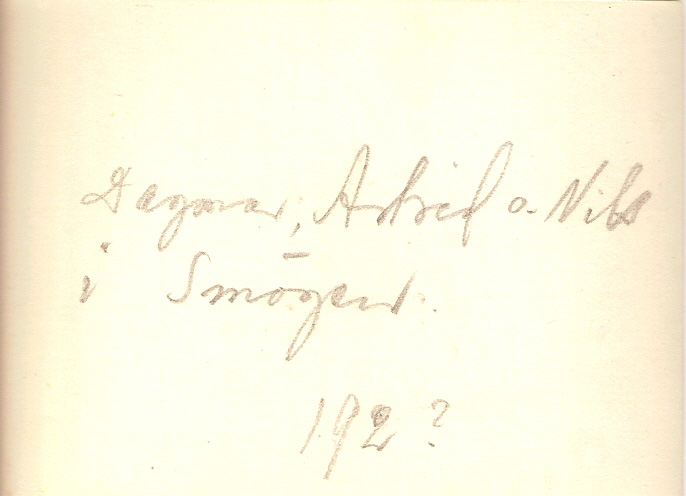 Dagmar, Astrid o. Nils
i Smögen.
192?